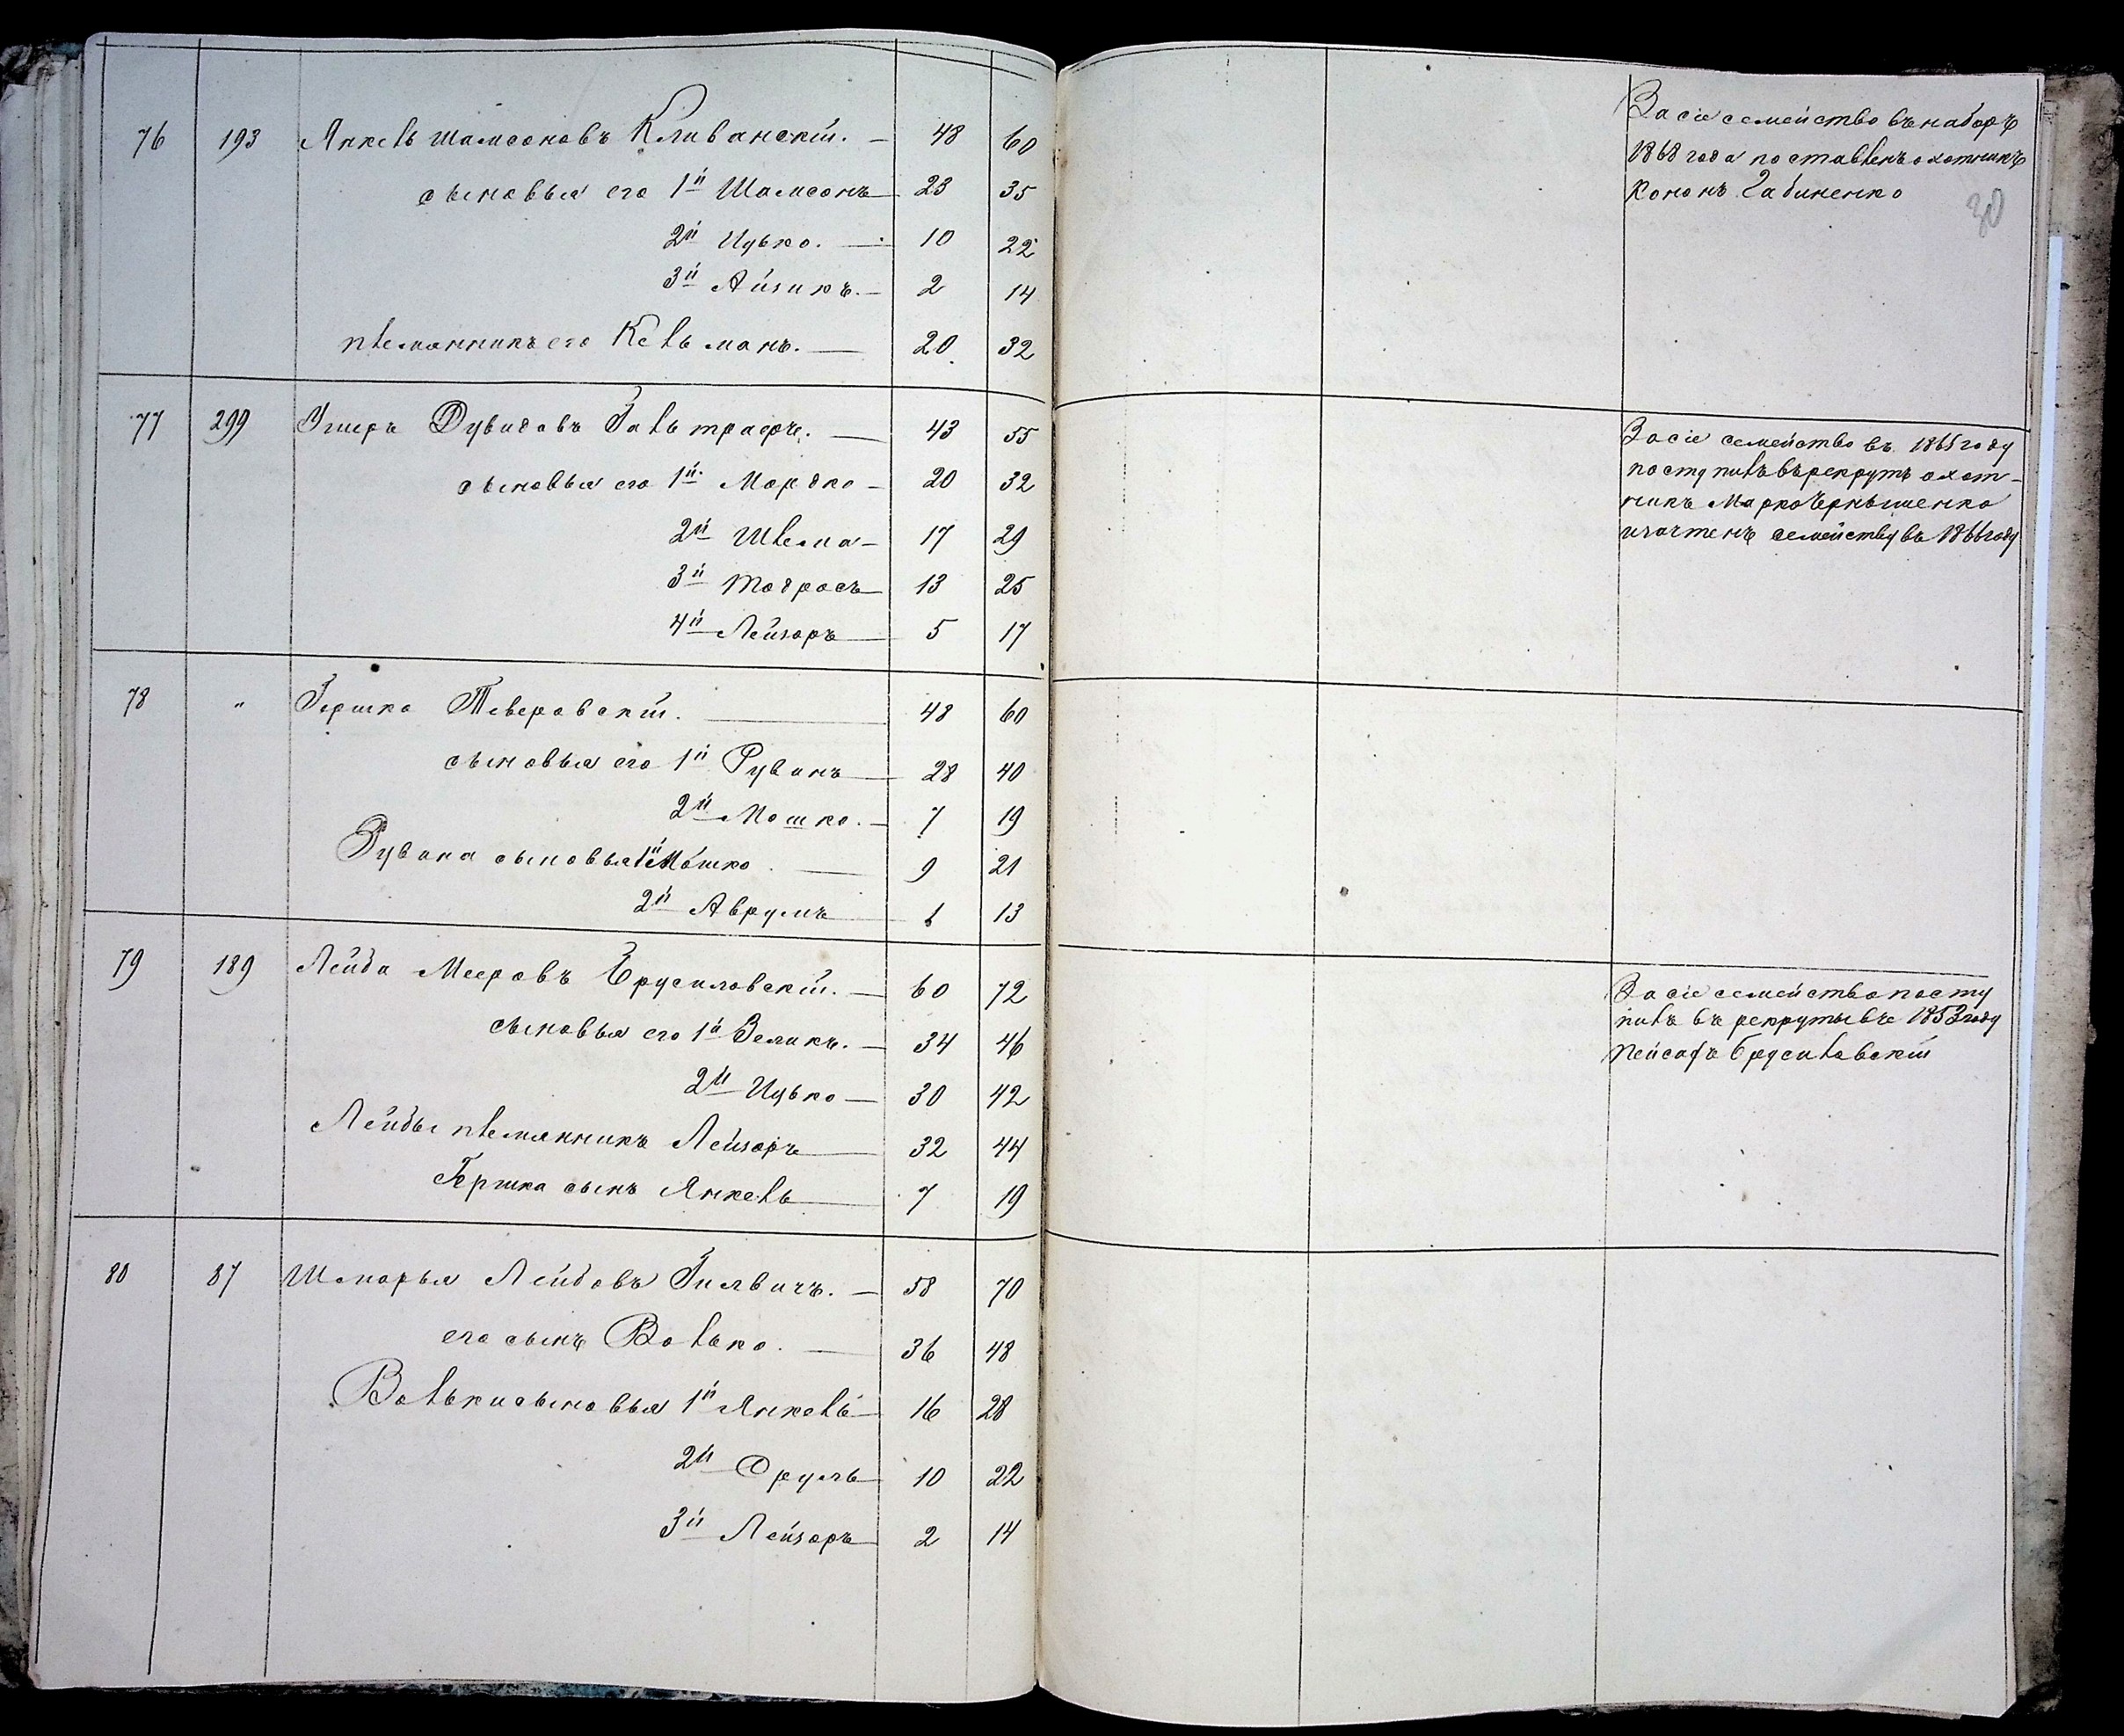 76 193 Янкель Шамсоновъ Кливанскій. — 48 60
сыновья его 1й Шамсонъ 23 35
2й Ицько. — 10 22
3й Айзикъ. — 2 14
племянникъ его Кельманъ. — 20 32
77 299 Дувидовъ — 43 55
сыновья его 1й Мордко — 20 32
2й Шлема — 17 29
3й Тодросъ 13 25
4й Лейзоръ 5 17
78 " Гершко Тверовскій. 48 60
сыновья его 1й Рувинъ 28 40
2й Мошко. — 7 19
Рувина сыновья 1й Мошко 9 21
2й Аврумъ 1 13
79 189 Лейба Мееровъ Брусиловскій. — 60 72
сыновья его 1й Зеликъ. — 34 46
2й Ицько — 30 42
Лейбы племянникъ Лейзоръ 32 44
Гершка сынъ Янкель 7 19
80 87 Шмарья Лейбовъ — 58 70
его сынъ Волько. 36 48
Вольки сыновья 1й Янкель 16 28
2й Сруль 10 22
3й Лейзоръ 2 14
За сіе семейство въ наборъ
1868 года поставленъ охотникъ
Кононъ Бабиненко
30
За сіе семейство въ 1865 году
поступилъ въ рекрутъ охот-
никъ Марко Чернышенко
и зачтенъ семейству въ 1866 году
За сіе семейство посту
пилъ въ рекруты въ 1853 году
Пейсахъ Брусиловскій